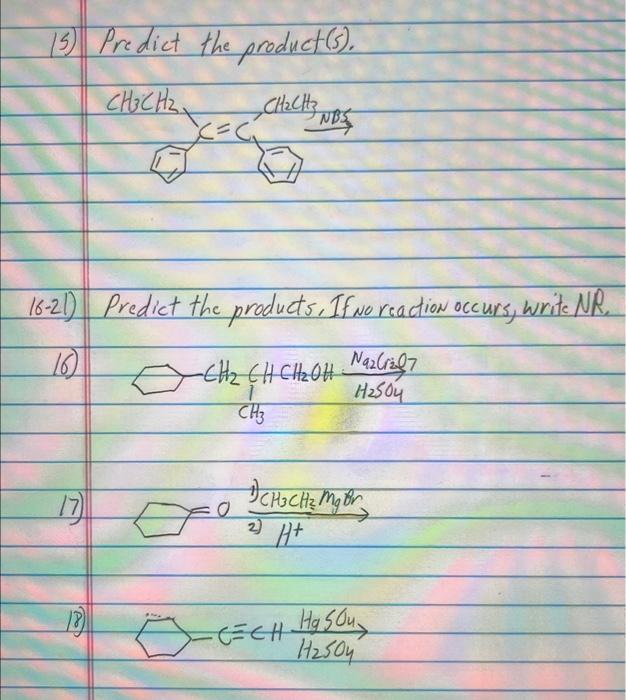 15) Predict the product(s).
CH3CH2 CH2CH3
C=C NBS
16-21) Predict the products, If no reaction occurs, write NR.
16) -CH2 CH CH2OH Na2Cr2O7
H2SO4
CH3
17) =O 1) CH3CH2 MgBr
2) H+
18) -C≡CH HgSO4
H2SO4